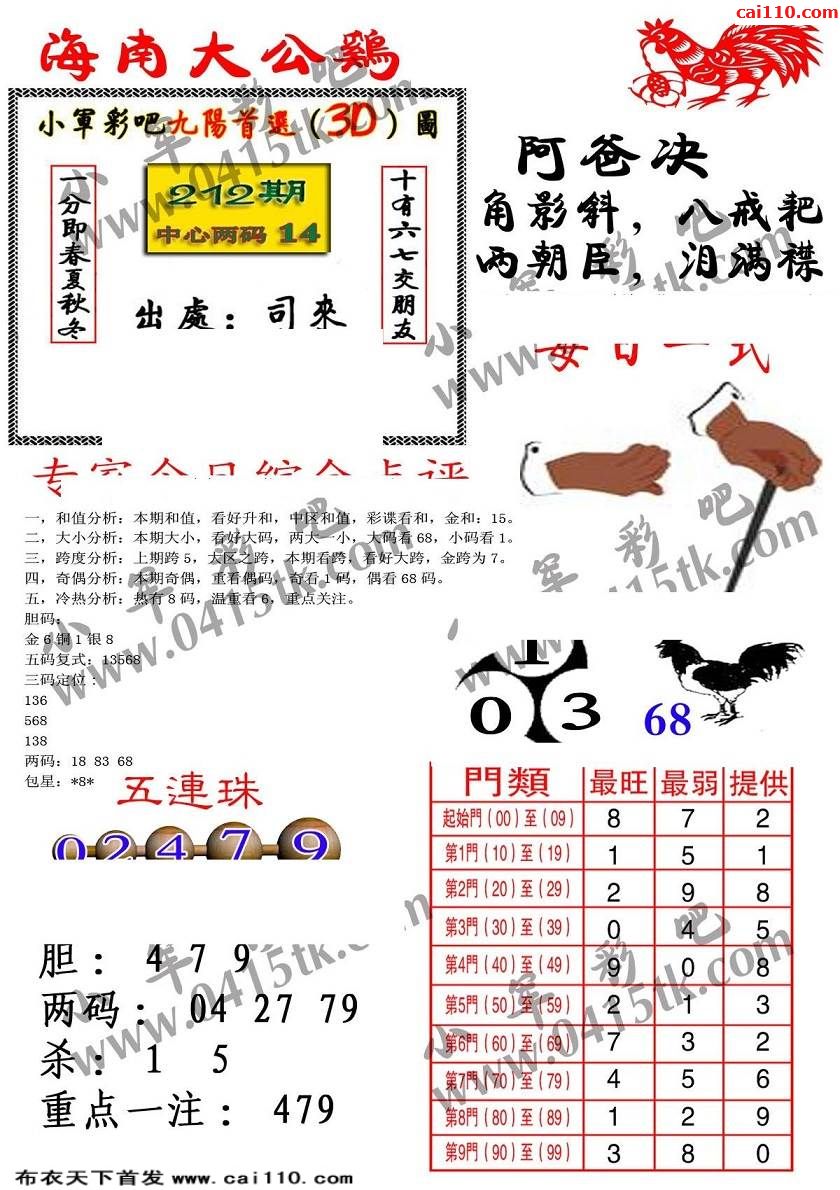 cai110.com
海南大公鷄
小軍彩吧九陽首選（3D）圖
212期
中心两码 14
一分即春夏秋冬
十有六七交朋友
出處：司來
阿爸决
角影斜，八戒耙
两朝臣，泪满襟
每日一式
专家今日综合点评
一，和值分析：本期和值，看好升和，中区和值，彩谍看和，金和：15。
二，大小分析：本期大小，看好大码，两大一小，大码看68，小码看1。
三，跨度分析：上期跨5，大区之跨，本期看跨，看好大跨，金跨为7。
四，奇偶分析：本期奇偶，重看偶码，奇看1码，偶看68码。
五，冷热分析：热有8码，温重看6，重点关注。
胆码：
金6铜1银8
五码复式：13568
三码定位：
136
568
138
两码：18 83 68
包星：*8*
1
0 3
68
五連珠
0 2 4 7 9
胆： 4 7 9
两码： 04 27 79
杀： 1 5
重点一注： 479
門類 最旺 最弱 提供
起始門（00）至（09） 8 7 2
第1門（10）至（19） 1 5 1
第2門（20）至（29） 2 9 8
第3門（30）至（39） 0 4 5
第4門（40）至（49） 9 0 8
第5門（50）至（59） 2 1 3
第6門（60）至（69） 7 3 2
第7門（70）至（79） 4 5 6
第8門（80）至（89） 1 2 9
第9門（90）至（99） 3 8 0
布衣天下首发 www.cai110.com
小军彩吧
www.0415tk.com
小军彩吧
www.0415tk.com
小军彩吧
www.0415tk.com